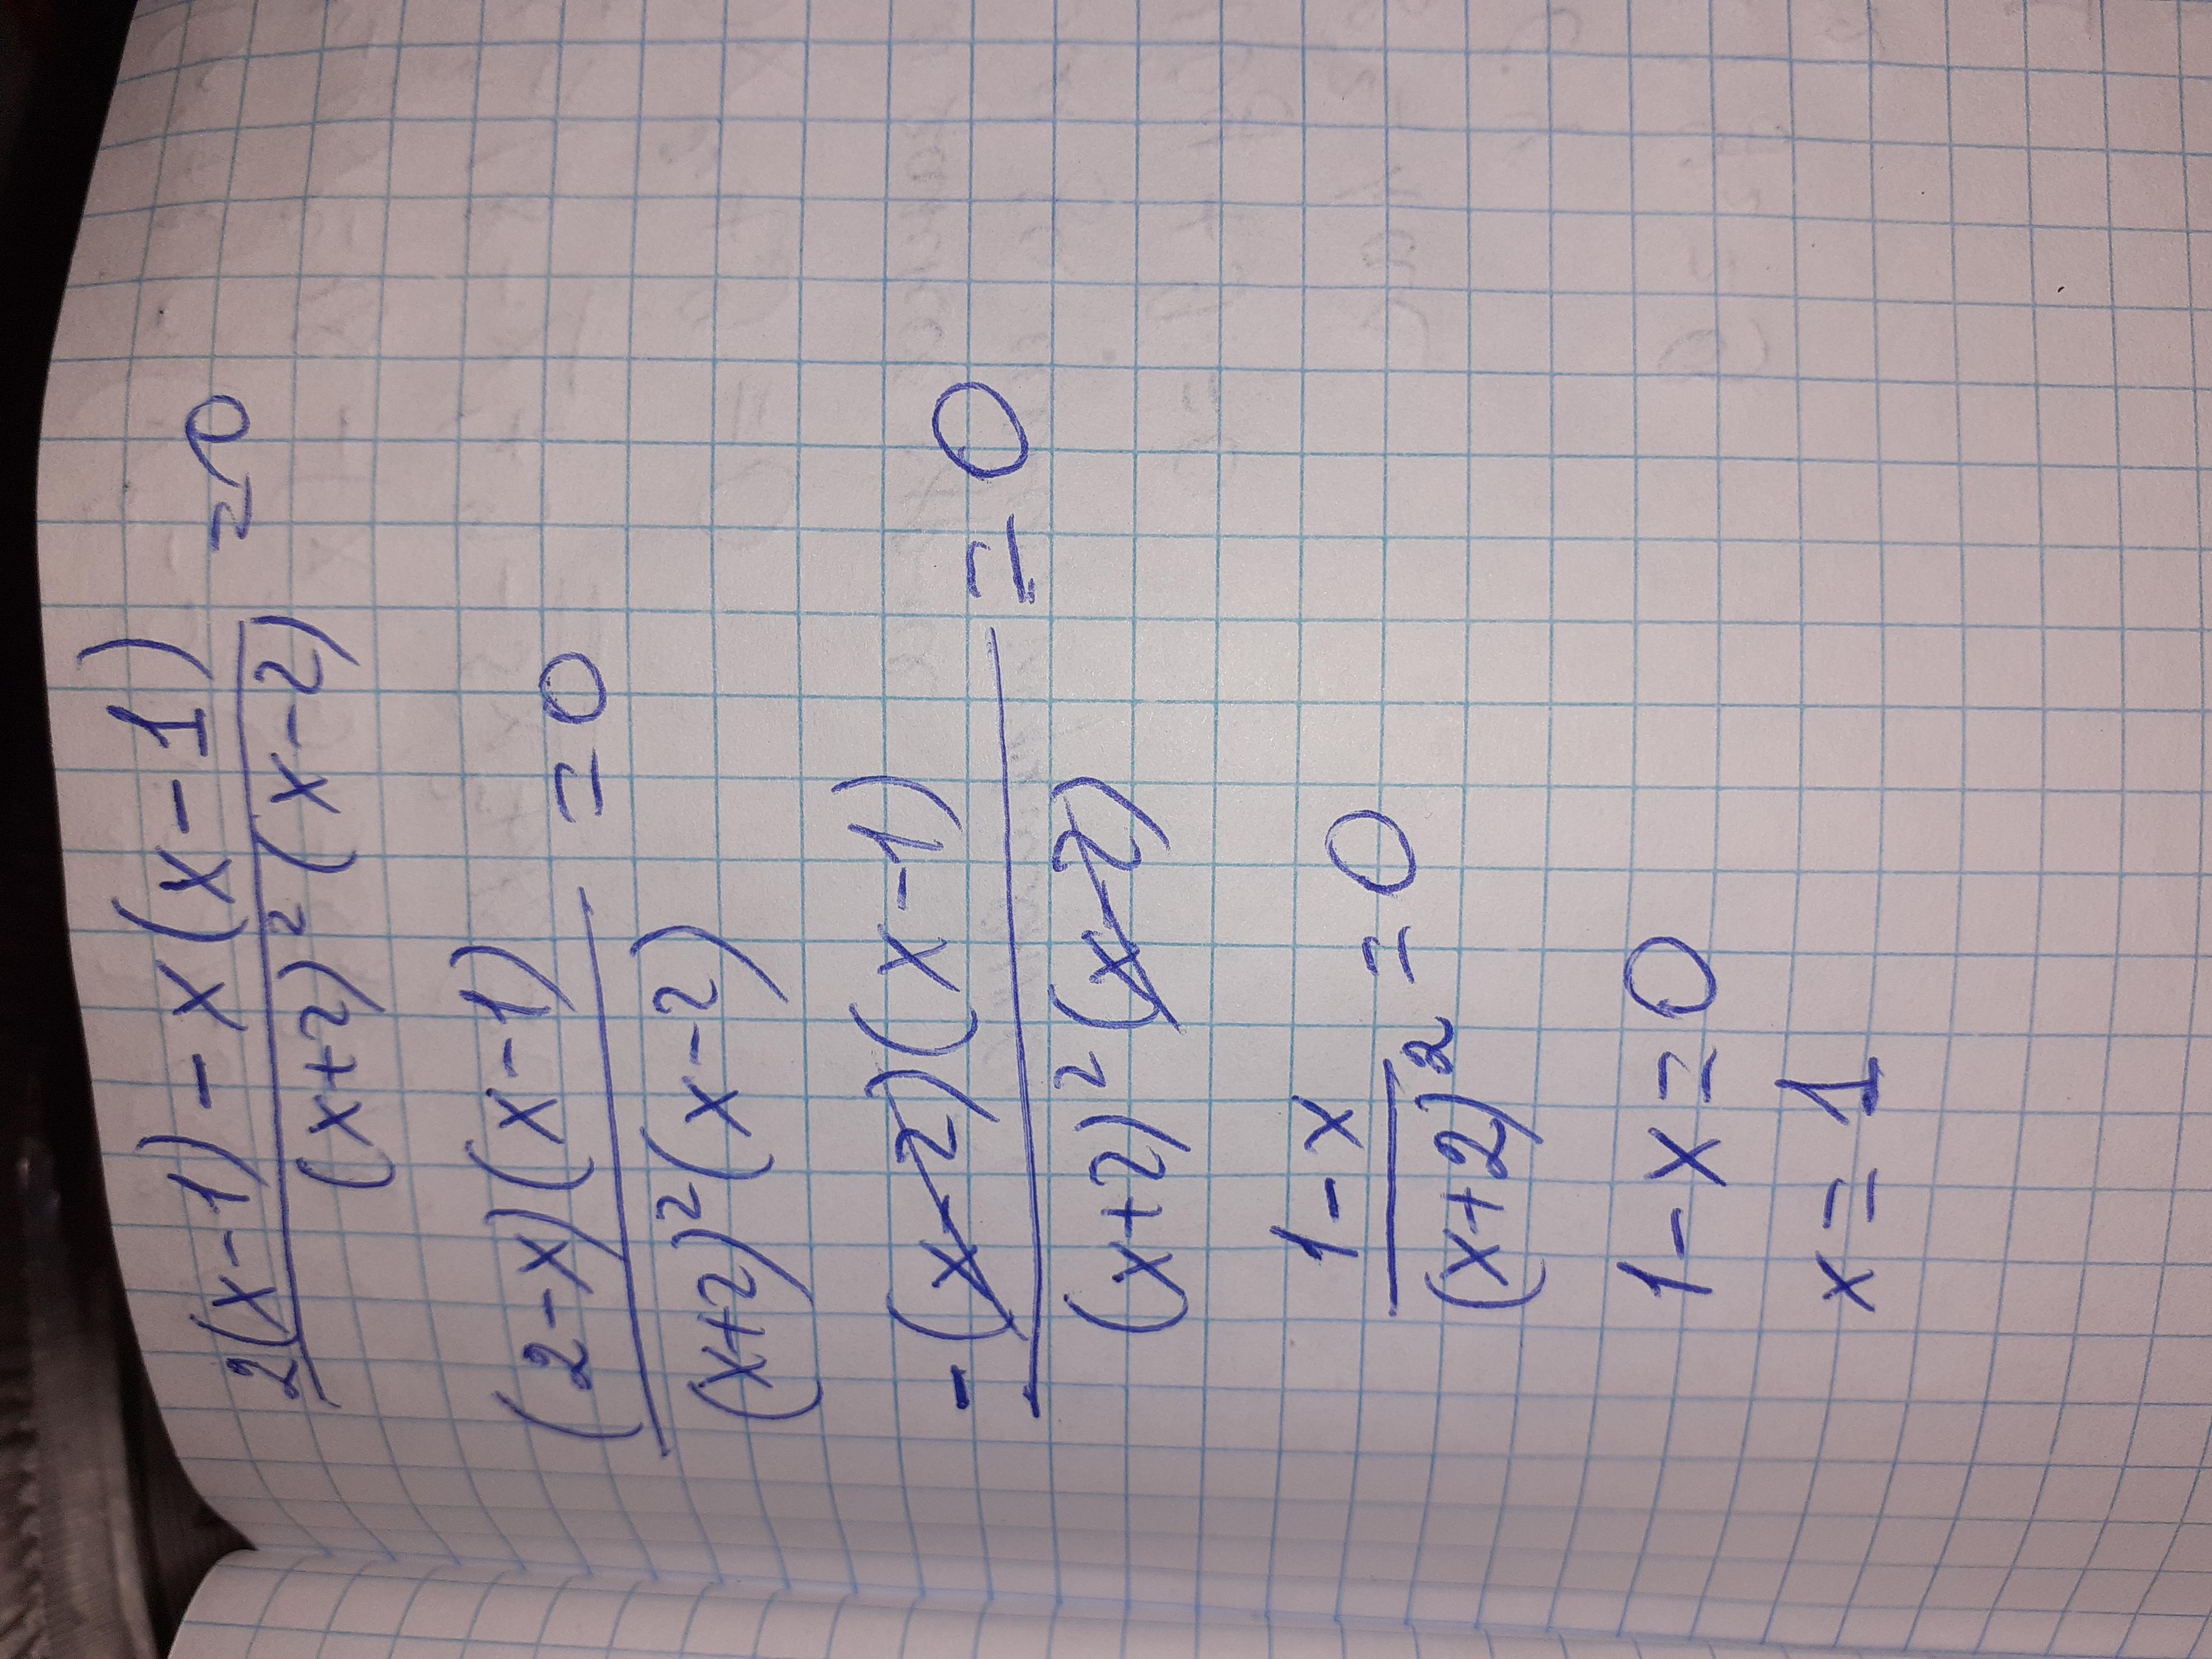 2(x-1) - x(x-1)
(x+2)²(x-2)
=0
(2-x)(x-1)
(x+2)²(x-2)
=0
-(x-2)(x-1)
(x+2)²(x-2)
=0
1-x
(x+2)²
=0
1-x=0
x=1